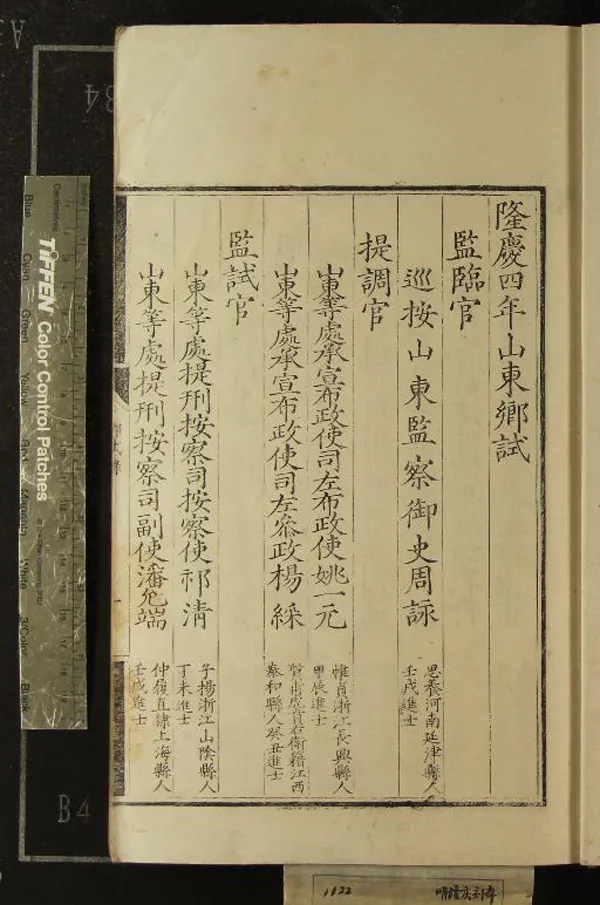 隆慶四年山東鄉試
監臨官
巡按山東監察御史周詠
思養河南延津縣人
壬戌進士
提調官
山東等處承宣布政使司左布政使姚一元
惟貞浙江長興縣人
甲辰進士
山東等處承宣布政使司左叅政楊綵
貴右衛籍江西
泰和縣人癸丑進士
監試官
山東等處提刑按察司按察使祁清
子揚浙江山陰縣人
丁未進士
山東等處提刑按察司副使潘允端
仲履直隸上海縣人
壬戌進士
一
TIFFEN Color Control Patches
Centimetres
Blue
Cyan
Green
Yellow
Red
Magenta
White
3/Color
Black
B4
1122
明隆慶刻本